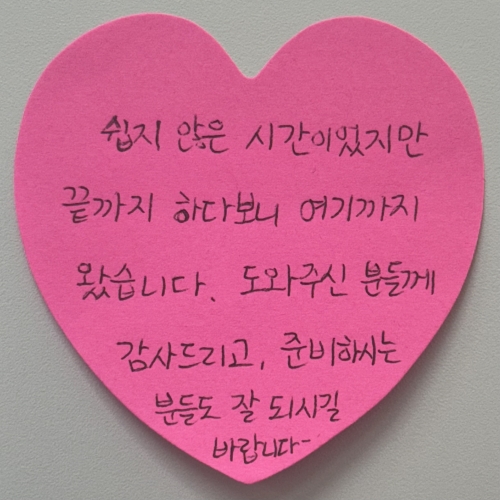 쉽지 않은 시간이었지만
끝까지 하다보니 여기까지
왔습니다. 도와주신 분들께
감사드리고, 준비하시는
분들도 잘 되시길
바랍니다~